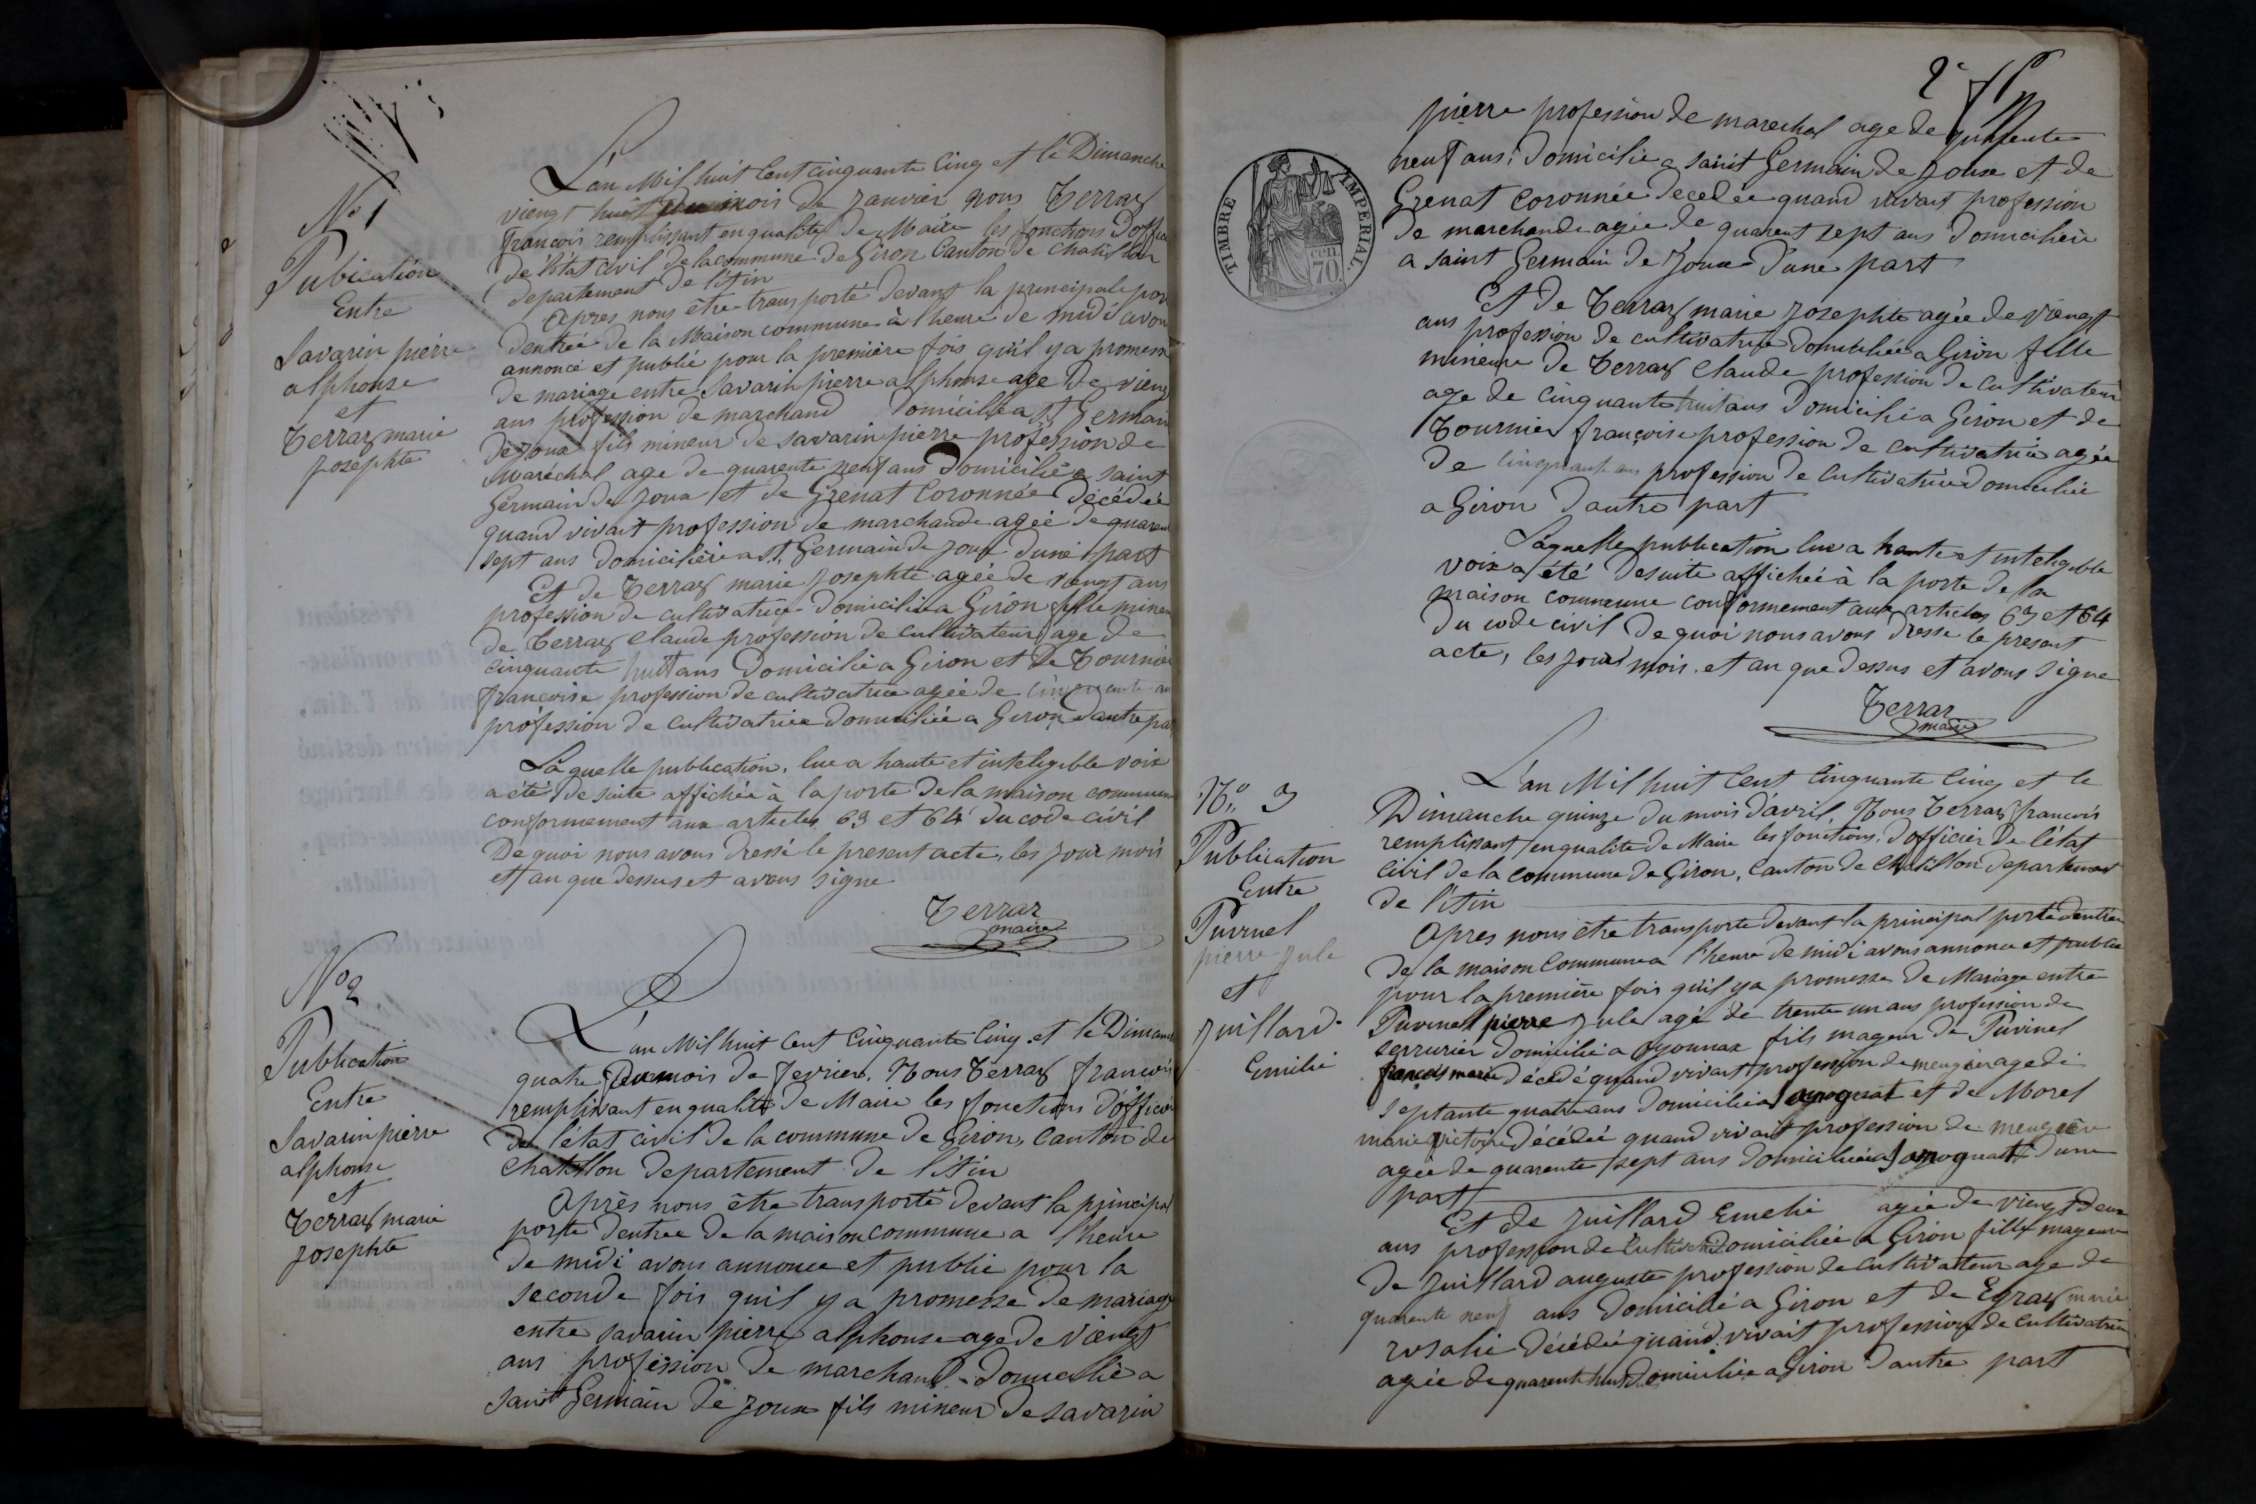 N° 1
Publication
Entre
Savarin pierre
alphonse
et
Terraz marie
josephte
L'an Mil huit Cent cinquante Cinq et le Dimanche
viengt huit du mois de Janvier nous Terraz
françois remplissant en qualité de Maire les fonctions D'officier
De l'état civil de la commune de Giron Canton de Chatillon
departement de l'Ain
Apres nous être transporté devant la principale por
dentrée de la Maison commune à l'heure de midi avon
annoncé et publié pour la première fois qu'il y a promesse
de mariage entre Savarin pierre alphonse age de viengt
ans profession de marchand Domicilié a St Germain
De joux fils mineur de savarin pierre profession de
Maréchal age de quarente neuf ans Domicilié a saint
Germain de joux et de Grenat Coronnée Décédée
quand vivait profession de marchande agée de quarent
sept ans domicilieé a St Germain de joux d'une part
Et de Terraz marie josephte agée de viengt ans
profession de cultivatrice domicilié a Giron fille mineu
de Terraz Claude profession de cultivateur age de
cinquante huit ans Domicilié a Giron et de Tournier
françoise profession de cultivatrice agée de cinquante an
profession de cultivatrice domiciliée a Giron dautre par
Laquelle publication, lue a haute et inteligible voix
a été de suite affichée à la porte de la maison commune
conformement aux articles 63 et 64 du code civil
De quoi nous avons dressé le present acte, les jour mois
et an que dessus et avons signe
Terraz
maire
N° 2
Publication
Entre
Savarin pierre
alphonse
et
Terraz marie
josephte
L'an Mil huit Cent Cinquante Cinq et le Dimanc
quatre du mois de fevrier. Nous Terraz françois
remplissant en qualité de Maire les fonctions D'officier
De l'état civil de la commune de Giron, Canton de
Chatillon departement de l'Ain
Après nous être transporté devant la principal
porte dentree de la maison commune a l'heure
De midi avons annonce et publié pour la
seconde fois qu'il y a promesse de mariage
entre savarin pierre alphonse age de viengt
ans profession de marchand Domicilié a
saint Germain de joux fils mineur de savarin
2e
pierre profession de marechal age de quarente
neuf ans, Domicilié a saint Germain de joux et de
Grenat Coronnée décedée quand vivait profession
de marchande agée de quarent sept ans Domicilieé
a saint Germain de joux D'une part
TIMBRE IMPERIAL.
70 cen
Et de Terraz marie josephte agée de viengt
ans profession de cultivatrice domiciliée a Giron fille
mineure de Terraz Claude profession de cultivateur
age de cinquante huit ans Domicilié a Giron et de
Tournier françoise profession de cultivatrice agée
de cinquante ans profession de cultivatrice domiciliée
a Giron dautre part
Laquelle publication lue a haute et inteligible
voix a été desuite affichée à la porte de la
maison commune conformement aux articles 63 et 64
du code civil De quoi nous avons dresse le present
acte, les jour mois et an que dessus et avons signe
Terraz
maire
N° 3
Publication
Entre
Puvinel
pierre jule
et
juillard
Emilié
L'an Mil huit Cent Cinquante Cinq et le
Dimanche quinze du mois d'avril, Nous Terraz françois
remplissant en qualite de Maire les fonctions, d'officier de l'état
civil de la commune de Giron, Canton de Chatillon departement
de l'Ain
Apres nous être transporte devant la principal porte dentrée
de la maison Commune a l'heure de midi avons annonce et publié
pour la première fois qu'il y a promesse de Mariage entre
Puvinel pierre jule agé de trente un ans profession de
serrurier domicilié a oyonnax fils mageur de Puvinel
françois marie décédé quand vivait profession de meugnier age de
septante quatre ans domicilié a Samognat et de Morel
marie victoire décédée quand vivait profession de meugnier
agée de quarente sept ans domiciliée a Samognat D'une
part
Et de juillard Emelié agée de viengt deux
ans profession de cultivatrice Domiciliée a Giron fille mageure
De juillard auguste profession de cultivatteur age de
quarente neuf ans domicilié a Giron et de Egraz marie
rosalie décédée quand vivait profession de cultivatrice
agée de quarente huit Domiciliée a Giron dautre part